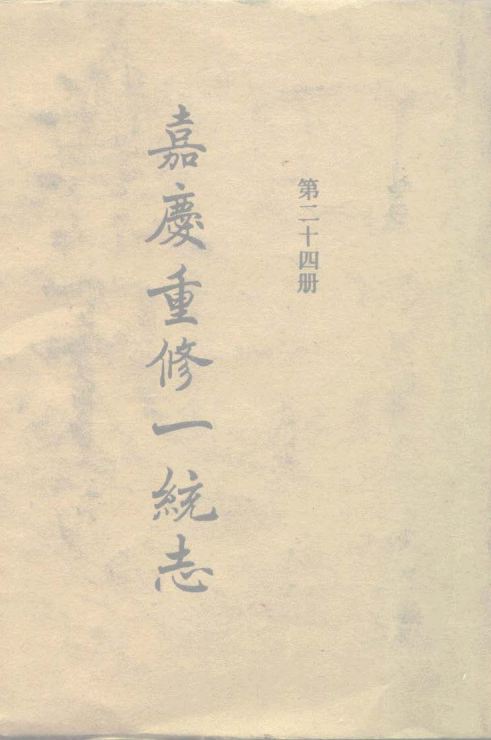 第二十四册
嘉慶重修一統志